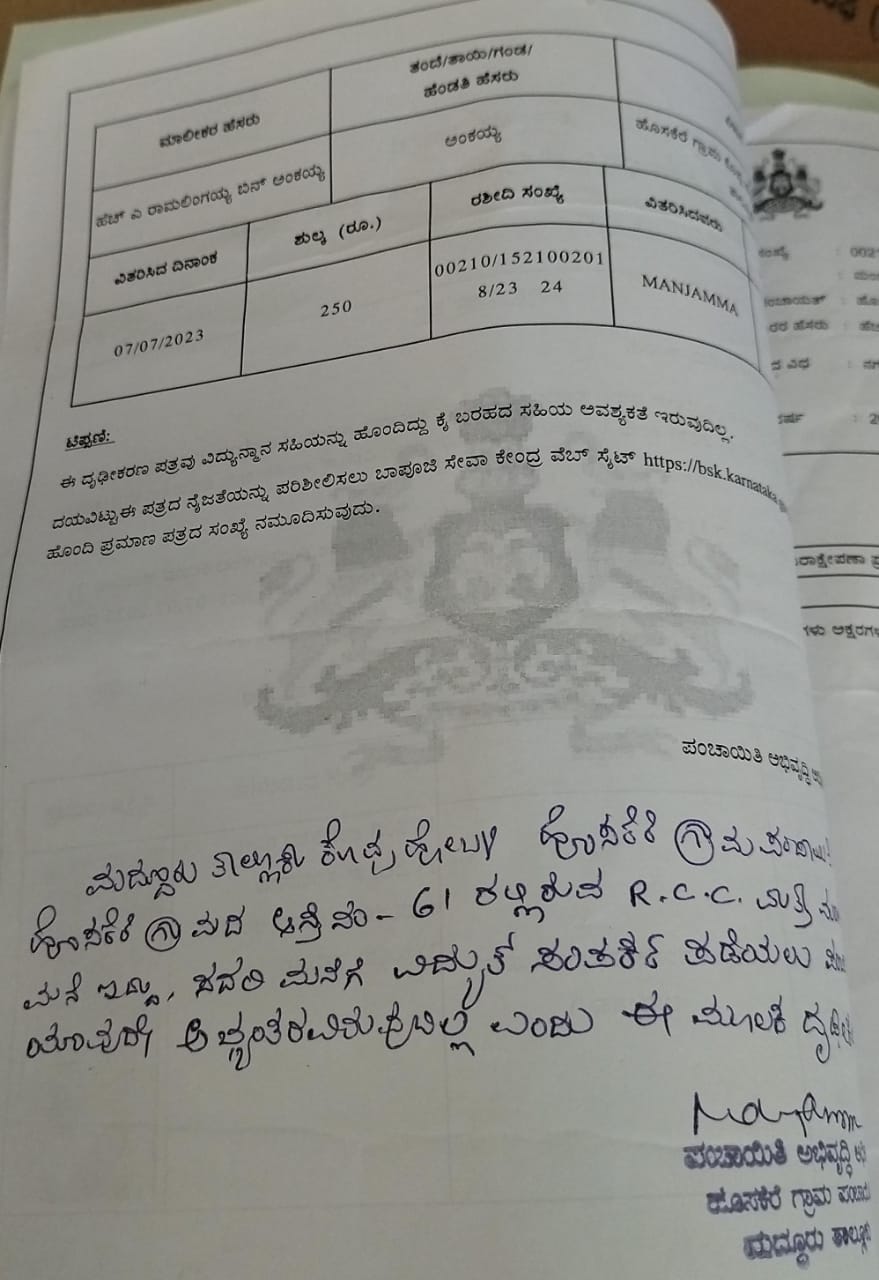 ಮಾಲೀಕರ ಹೆಸರು
ತಂದೆ/ತಾಯಿ/ಗಂಡ/
ಹೆಂಡತಿ ಹೆಸರು
ಹೆಚ್ ಎ ರಾಮಲಿಂಗಯ್ಯ ಬಿನ್ ಅಂಕಯ್ಯ
ಅಂಕಯ್ಯ
ಹೊಸಕೆರೆ ಗ್ರಾಮ
ವಿತರಿಸಿದ ದಿನಾಂಕ
ಶುಲ್ಕ (ರೂ.)
ರಶೀದಿ ಸಂಖ್ಯೆ
ವಿತರಿಸಿದವರು
07/07/2023
250
00210/152100201
8/23 24
MANJAMMA
ಟಿಪ್ಪಣಿ:
ಈ ದೃಢೀಕರಣ ಪತ್ರವು ವಿದ್ಯುನ್ಮಾನ ಸಹಿಯನ್ನು ಹೊಂದಿದ್ದು ಕೈ ಬರಹದ ಸಹಿಯ ಅವಶ್ಯಕತೆ ಇರುವುದಿಲ್ಲ.
ದಯವಿಟ್ಟುಈ ಪತ್ರದ ನೈಜತೆಯನ್ನು ಪರಿಶೀಲಿಸಲು ಬಾಪೂಜಿ ಸೇವಾ ಕೇಂದ್ರ ವೆಬ್ ಸೈಟ್ https://bsk.karnataka
ಹೊಂದಿ ಪ್ರಮಾಣ ಪತ್ರದ ಸಂಖ್ಯೆ ನಮೂದಿಸುವುದು.
ಪಂಚಾಯಿತಿ ಅಭಿವೃದ್ಧಿ
ಮದ್ದೂರು ತಾಲ್ಲೂಕು ಕೊಪ್ಪ ಹೋಬಳಿ ಹೊಸಕೆರೆ ಗ್ರಾಮ
ಹೊಸಕೆರೆ ಗ್ರಾಮದ ಆಸ್ತಿ ನಂ- 61 ರಲ್ಲಿರುವ R.C.C. ಮತ್ತು
ಮನೆ ಇದ್ದು, ಸದರಿ ಮನೆಗೆ ವಿದ್ಯುತ್ ಸಂಪರ್ಕ ಪಡೆಯಲು
ಯಾವುದೇ ಅಭ್ಯಂತರವಿರುವುದಿಲ್ಲ ಎಂದು ಈ ಮೂಲಕ
ಪಂಚಾಯಿತಿ ಅಭಿವೃದ್ಧಿ
ಹೊಸಕೆರೆ ಗ್ರಾಮ
ಮದ್ದೂರು